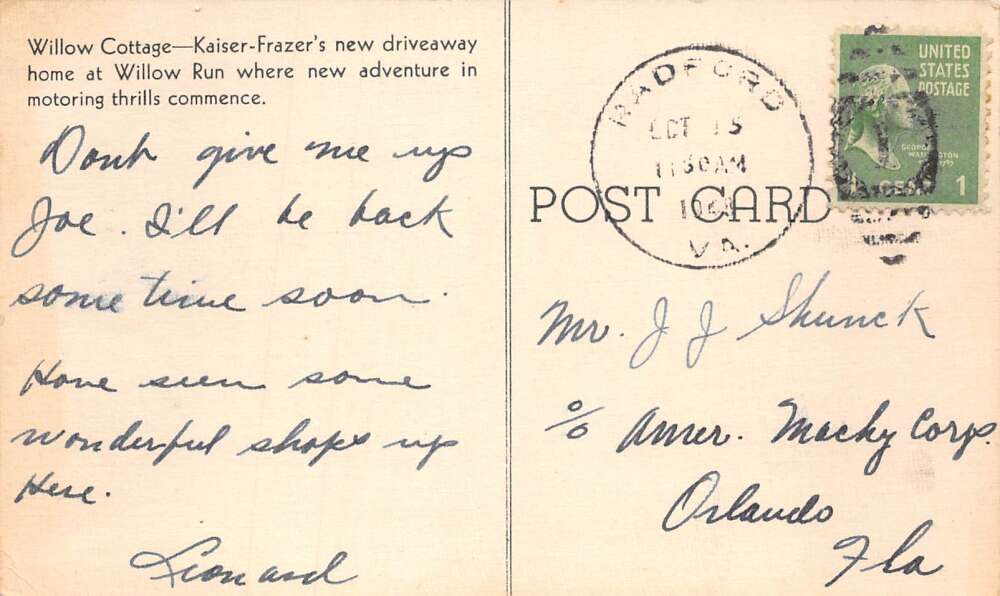 Willow Cottage—Kaiser-Frazer's new driveaway
home at Willow Run where new adventure in
motoring thrills commence.
Don't give me up
Joe. I'll be back
some time soon.
Have seen some
wonderful shops up
Here.
Leonard
RADFORD
OCT 15
11 30 AM
VA.
UNITED
STATES
POSTAGE
GEORGE
WASHINGTON
1
POST CARD
Mr. J J Shunck
% Amer. Machy Corp.
Orlando
Fla